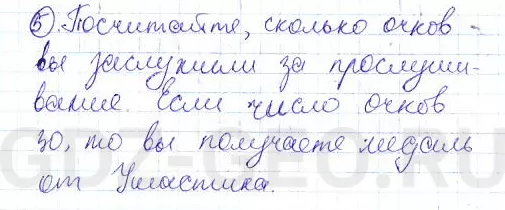 5). Посчитайте, сколько очков -
вы заслужили за прослуши-
вание. Если число очков
30, то вы получаете медаль
от Ушастика.
GDZ-GEO.RU